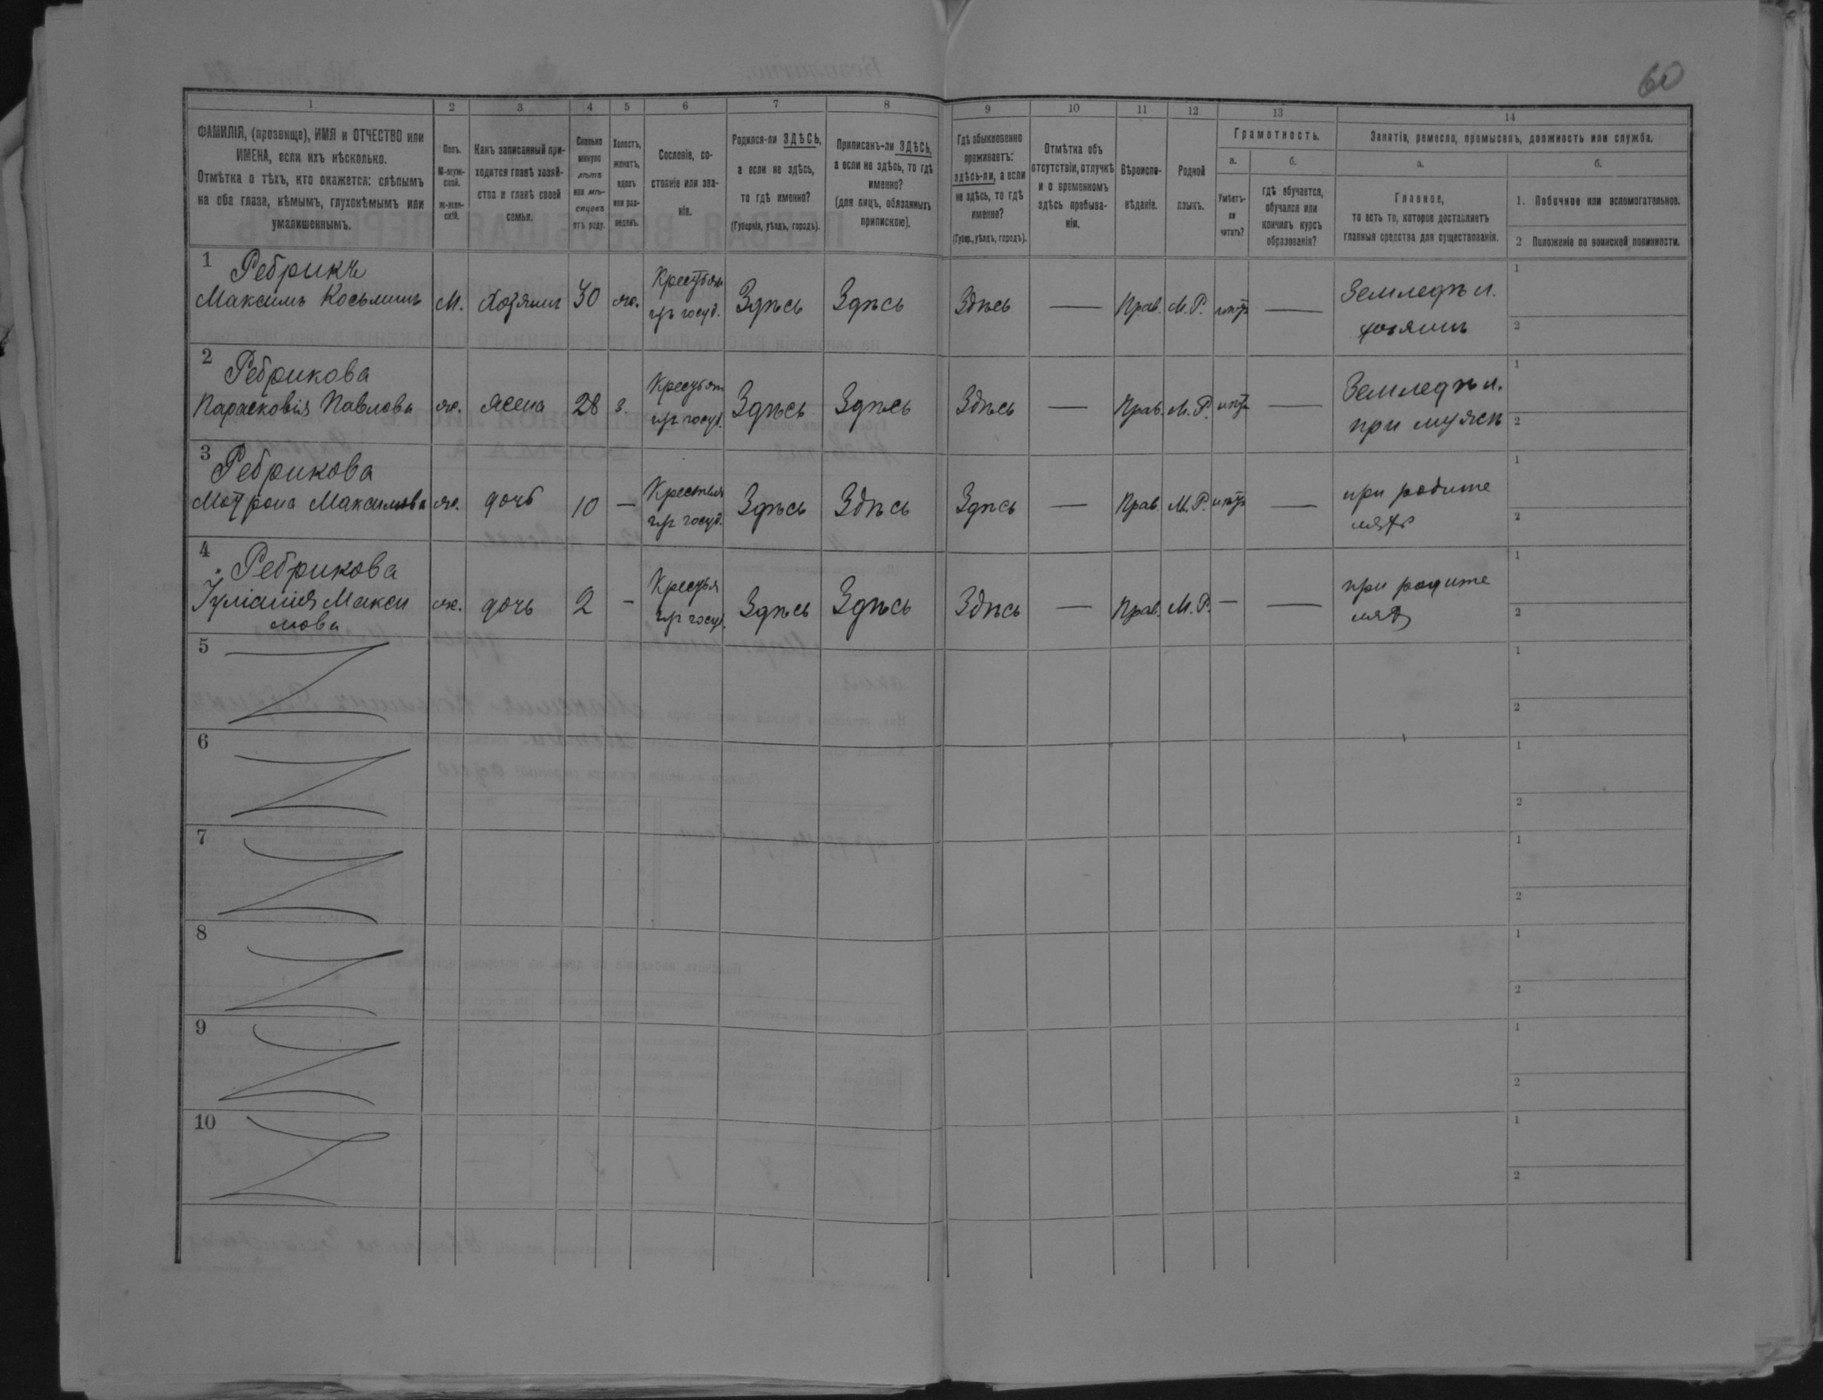 60
1 2 3 4 5 6 7 8 9 10 11 12 13 14
ФАМИЛІЯ, (прозвище), ИМЯ и ОТЧЕСТВО или
ИМЕНА, если ихъ нѣсколько.
Отмѣтка о тѣхъ, кто окажется: слѣпымъ
на оба глаза, нѣмымъ, глухонѣмымъ или
умалишеннымъ.
Полъ.
М-муж-
ской.
ж-жен-
скій.
Какъ записанный при-
ходится главѣ хозяй-
ства и главѣ своей
семьи.
Сколько
минуло
лѣтъ
или мѣ-
сяцевъ
отъ роду.
Холостъ,
женатъ,
вдовъ
или раз-
веденъ.
Сословіе, со-
стояніе или зва-
ніе.
Родился-ли ЗДѢСЬ,
а если не здѣсь,
то гдѣ именно?
(Губернія, уѣздъ, городъ).
Приписанъ-ли ЗДѢСЬ,
а если не здѣсь, то гдѣ
именно?
(для лицъ, обязанныхъ
припискою).
Гдѣ обыкновенно
проживаетъ:
здѣсь-ли, а если
не здѣсь, то гдѣ
именно?
(Губер., уѣздъ, городъ).
Отмѣтка объ
отсутствіи, отлучкѣ
и о временномъ
здѣсь пребыва-
ніи.
Вѣроиспо-
вѣданіе.
Родной
языкъ.
Грамотность.
а.
Умѣетъ-
ли
читать?
б.
гдѣ обучается,
обучался или
кончилъ курсъ
образованія?
Занятіе, ремесло, промыселъ, должность или служба.
а.
Главное,
то есть то, которое доставляетъ
главныя средства для существованія.
б.
1. Побочное или вспомогательное.
2 Положеніе по воинской повинности.
1 Ребрикъ
Максимъ Косьминъ м. Хозяинъ 30 ж. Крестьян
изъ госуд. Здѣсь Здѣсь Здѣсь — Прав. М.Р. нѣтъ — Земледѣл.
хозяинъ
1
2
2 Ребрикова
Парасковія Павлова ж. жена 28 з. Крестьян
изъ госуд. Здѣсь Здѣсь Здѣсь — Прав. М.Р. нѣтъ — Земледѣл.
при мужѣ
1
2
3 Ребрикова
Мотрона Максимова ж. дочь 10 — Крестьян
изъ госуд. Здѣсь Здѣсь Здѣсь — Прав. М.Р. нѣтъ — при родите
ляхъ
1
2
4 Ребрикова
Іуліанія Макси
мова ж. дочь 2 — Крестья
изъ госуд. Здѣсь Здѣсь Здѣсь — Прав. М.Р. — — при родите
ляхъ
1
2
5
1
2
6
1
2
7
1
2
8
1
2
9
1
2
10
1
2